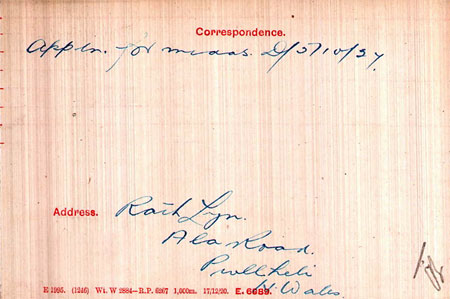 Correspondence.
Appln. for medas. D/5/10/37.
Address.
Ala Road.
Pwllheli
N. Wales.
E 1995. (1246) Wt. W 2884—R.P. 6267 1,000m. 17/12/20. E.6989.